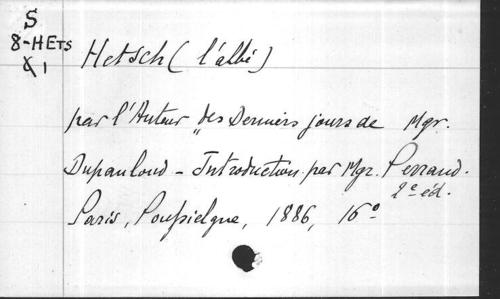 S
8-HETS
1
Hetsch (l'abbé)
par l'Auteur „des Derniers jours de Mgr.
Dupanloup – Introduction par Mgr. Perraud.
2e éd.
Paris, Poussielgue, 1886, 16º